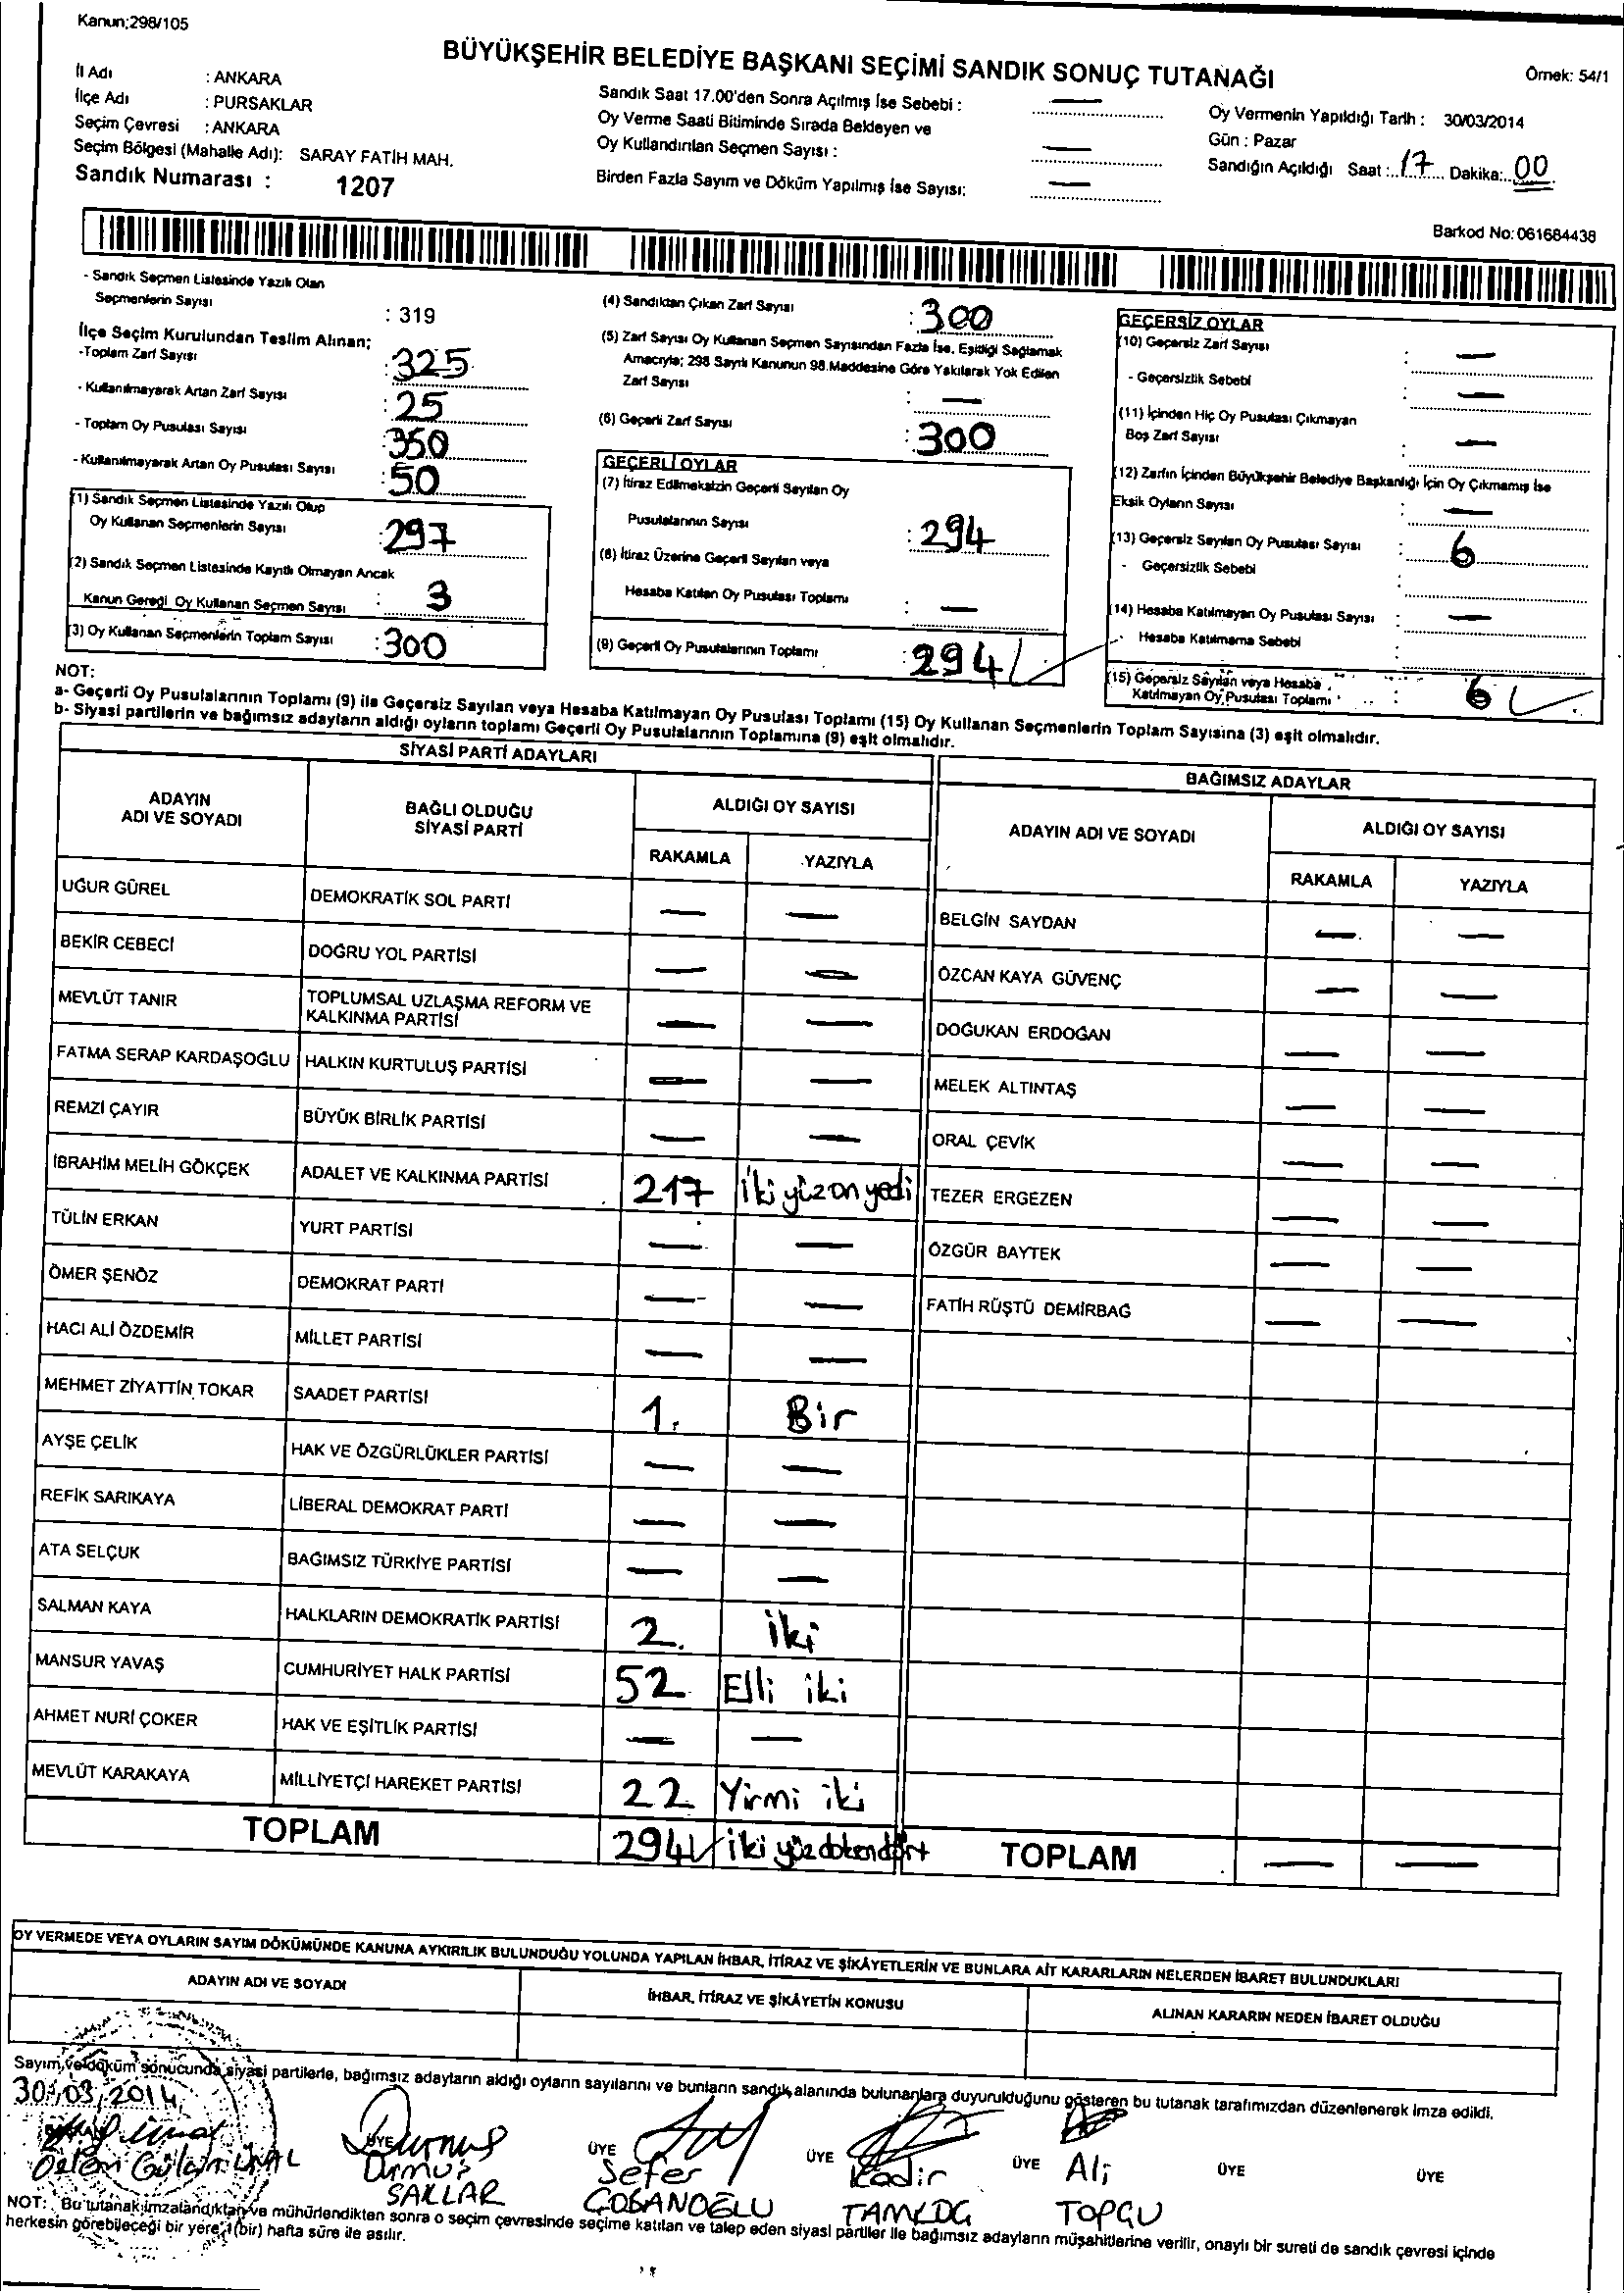 Kanun;298/105
BÜYÜKŞEHİR BELEDİYE BAŞKANI SEÇİMİ SANDIK SONUÇ TUTANAĞI
Örnek: 54/1
İl Adı : ANKARA
İlçe Adı : PURSAKLAR
Seçim Çevresi : ANKARA
Seçim Bölgesi (Mahalle Adı): SARAY FATİH MAH.
Sandık Numarası : 1207
Sandık Saat 17.00'den Sonra Açılmış İse Sebebi : —
Oy Verme Saati Bitiminde Sırada Bekleyen ve
Oy Kullandırılan Seçmen Sayısı : —
Birden Fazla Sayım ve Döküm Yapılmış İse Sayısı: —
Oy Vermenin Yapıldığı Tarih : 30/03/2014
Gün : Pazar
Sandığın Açıldığı Saat : 17 Dakika: 00
Barkod No: 061684438
- Sandık Seçmen Listesinde Yazılı Olan
Seçmenlerin Sayısı : 319
İlçe Seçim Kurulundan Teslim Alınan;
-Toplam Zarf Sayısı : 325
- Kullanılmayarak Artan Zarf Sayısı : 25
- Toplam Oy Pusulası Sayısı : 350
- Kullanılmayarak Artan Oy Pusulası Sayısı : 50
(1) Sandık Seçmen Listesinde Yazılı Olup
Oy Kullanan Seçmenlerin Sayısı : 297
(2) Sandık Seçmen Listesinde Kayıtlı Olmayan Ancak
Kanun Gereği Oy Kullanan Seçmen Sayısı : 3
(3) Oy Kullanan Seçmenlerin Toplam Sayısı : 300
(4) Sandıktan Çıkan Zarf Sayısı : 300
(5) Zarf Sayısı Oy Kullanan Seçmen Sayısından Fazla İse, Eşitliği Sağlamak
Amacıyla; 298 Sayılı Kanunun 98.Maddesine Göre Yakılarak Yok Edilen
Zarf Sayısı : —
(6) Geçerli Zarf Sayısı : 300
GEÇERLİ OYLAR
(7) İtiraz Edilmeksizin Geçerli Sayılan Oy
Pusulalarının Sayısı : 294
(8) İtiraz Üzerine Geçerli Sayılan veya
Hesaba Katılan Oy Pusulası Toplamı : —
(9) Geçerli Oy Pusulalarının Toplamı : 294
GEÇERSİZ OYLAR
(10) Geçersiz Zarf Sayısı : —
- Geçersizlik Sebebi : —
(11) İçinden Hiç Oy Pusulası Çıkmayan
Boş Zarf Sayısı : —
(12) Zarfın İçinden Büyükşehir Belediye Başkanlığı İçin Oy Çıkmamış İse
Eksik Oyların Sayısı : —
(13) Geçersiz Sayılan Oy Pusulası Sayısı : 6
- Geçersizlik Sebebi :
(14) Hesaba Katılmayan Oy Pusulası Sayısı : —
- Hesaba Katılmama Sebebi :
(15) Geçersiz Sayılan veya Hesaba
Katılmayan Oy Pusulası Toplamı : 6
NOT:
a- Geçerli Oy Pusulalarının Toplamı (9) ile Geçersiz Sayılan veya Hesaba Katılmayan Oy Pusulası Toplamı (15) Oy Kullanan Seçmenlerin Toplam Sayısına (3) eşit olmalıdır.
b- Siyasi partilerin ve bağımsız adayların aldığı oyların toplamı Geçerli Oy Pusulalarının Toplamına (9) eşit olmalıdır.
SİYASİ PARTİ ADAYLARI
ADAYIN ADI VE SOYADI BAĞLI OLDUĞU SİYASİ PARTİ ALDIĞI OY SAYISI
RAKAMLA YAZIYLA
UĞUR GÜREL DEMOKRATİK SOL PARTİ — —
BEKİR CEBECİ DOĞRU YOL PARTİSİ — —
MEVLÜT TANIR TOPLUMSAL UZLAŞMA REFORM VE KALKINMA PARTİSİ — —
FATMA SERAP KARDAŞOĞLU HALKIN KURTULUŞ PARTİSİ — —
REMZİ ÇAYIR BÜYÜK BİRLİK PARTİSİ — —
İBRAHİM MELİH GÖKÇEK ADALET VE KALKINMA PARTİSİ 217 iki yüz on yedi
TÜLİN ERKAN YURT PARTİSİ — —
ÖMER ŞENÖZ DEMOKRAT PARTİ — —
HACI ALİ ÖZDEMİR MİLLET PARTİSİ — —
MEHMET ZİYATTİN TOKAR SAADET PARTİSİ 1. Bir
AYŞE ÇELİK HAK VE ÖZGÜRLÜKLER PARTİSİ — —
REFİK SARIKAYA LİBERAL DEMOKRAT PARTİ — —
ATA SELÇUK BAĞIMSIZ TÜRKİYE PARTİSİ — —
SALMAN KAYA HALKLARIN DEMOKRATİK PARTİSİ 2. iki
MANSUR YAVAŞ CUMHURİYET HALK PARTİSİ 52 Elli iki
AHMET NURİ ÇOKER HAK VE EŞİTLİK PARTİSİ — —
MEVLÜT KARAKAYA MİLLİYETÇİ HAREKET PARTİSİ 22 Yirmi iki
TOPLAM 294 iki yüz doksendört
BAĞIMSIZ ADAYLAR
ADAYIN ADI VE SOYADI ALDIĞI OY SAYISI
RAKAMLA YAZIYLA
BELGİN SAYDAN — —
ÖZCAN KAYA GÜVENÇ — —
DOĞUKAN ERDOĞAN — —
MELEK ALTINTAŞ — —
ORAL ÇEVİK — —
TEZER ERGEZEN — —
ÖZGÜR BAYTEK — —
FATİH RÜŞTÜ DEMİRBAĞ — —
TOPLAM — —
OY VERMEDE VEYA OYLARIN SAYIM DÖKÜMÜNDE KANUNA AYKIRILIK BULUNDUĞU YOLUNDA YAPILAN İHBAR, İTİRAZ VE ŞİKÂYETLERİN VE BUNLARA AİT KARARLARIN NELERDEN İBARET BULUNDUKLARI
ADAYIN ADI VE SOYADI İHBAR, İTİRAZ VE ŞİKÂYETİN KONUSU ALINAN KARARIN NEDEN İBARET OLDUĞU
Sayım ve döküm sonucunda siyasi partilerle, bağımsız adayların aldığı oyların sayılarını ve bunların sandık alanında bulunanlara duyurulduğunu gösteren bu tutanak tarafımızdan düzenlenerek imza edildi.
30/03/2014
ÜYE ÜYE ÜYE ÜYE ÜYE ÜYE
Özlem Gülçin ÜNAL Durmuş SALLAR Sefer ÇOBANOĞLU Kadir Ali TOPÇU
NOT: Bu tutanak imzalandıktan ve mühürlendikten sonra o seçim çevresinde seçime katılan ve talep eden siyasi partiler ile bağımsız adayların müşahitlerine verilir, onaylı bir sureti de sandık çevresi içinde
herkesin görebileceği bir yere 1(bir) hafta süre ile asılır.